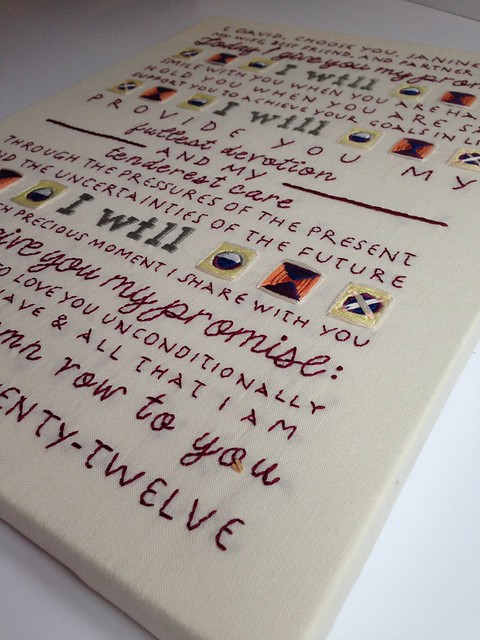 I, DAVID, CHOOSE YOU,
MY WIFE, BEST FRIEND, AND PARTNER
Today I give you my prom
I will
SMILE WITH YOU WHEN YOU ARE HA
HOLD YOU WHEN YOU ARE SA
SUPPORT YOU TO ACHIEVE YOUR GOALS IN LI
I will
PROVIDE YOU MY
fullest devotion
AND MY
tenderest care
THROUGH THE PRESSURES OF THE PRESENT
THE UNCERTAINTIES OF THE FUTURE
I will
PRECIOUS MOMENT I SHARE WITH YOU
give you my promise:
TO LOVE YOU UNCONDITIONALLY
AVE & ALL THAT I AM
mn vow to you
ENTY-TWELVE